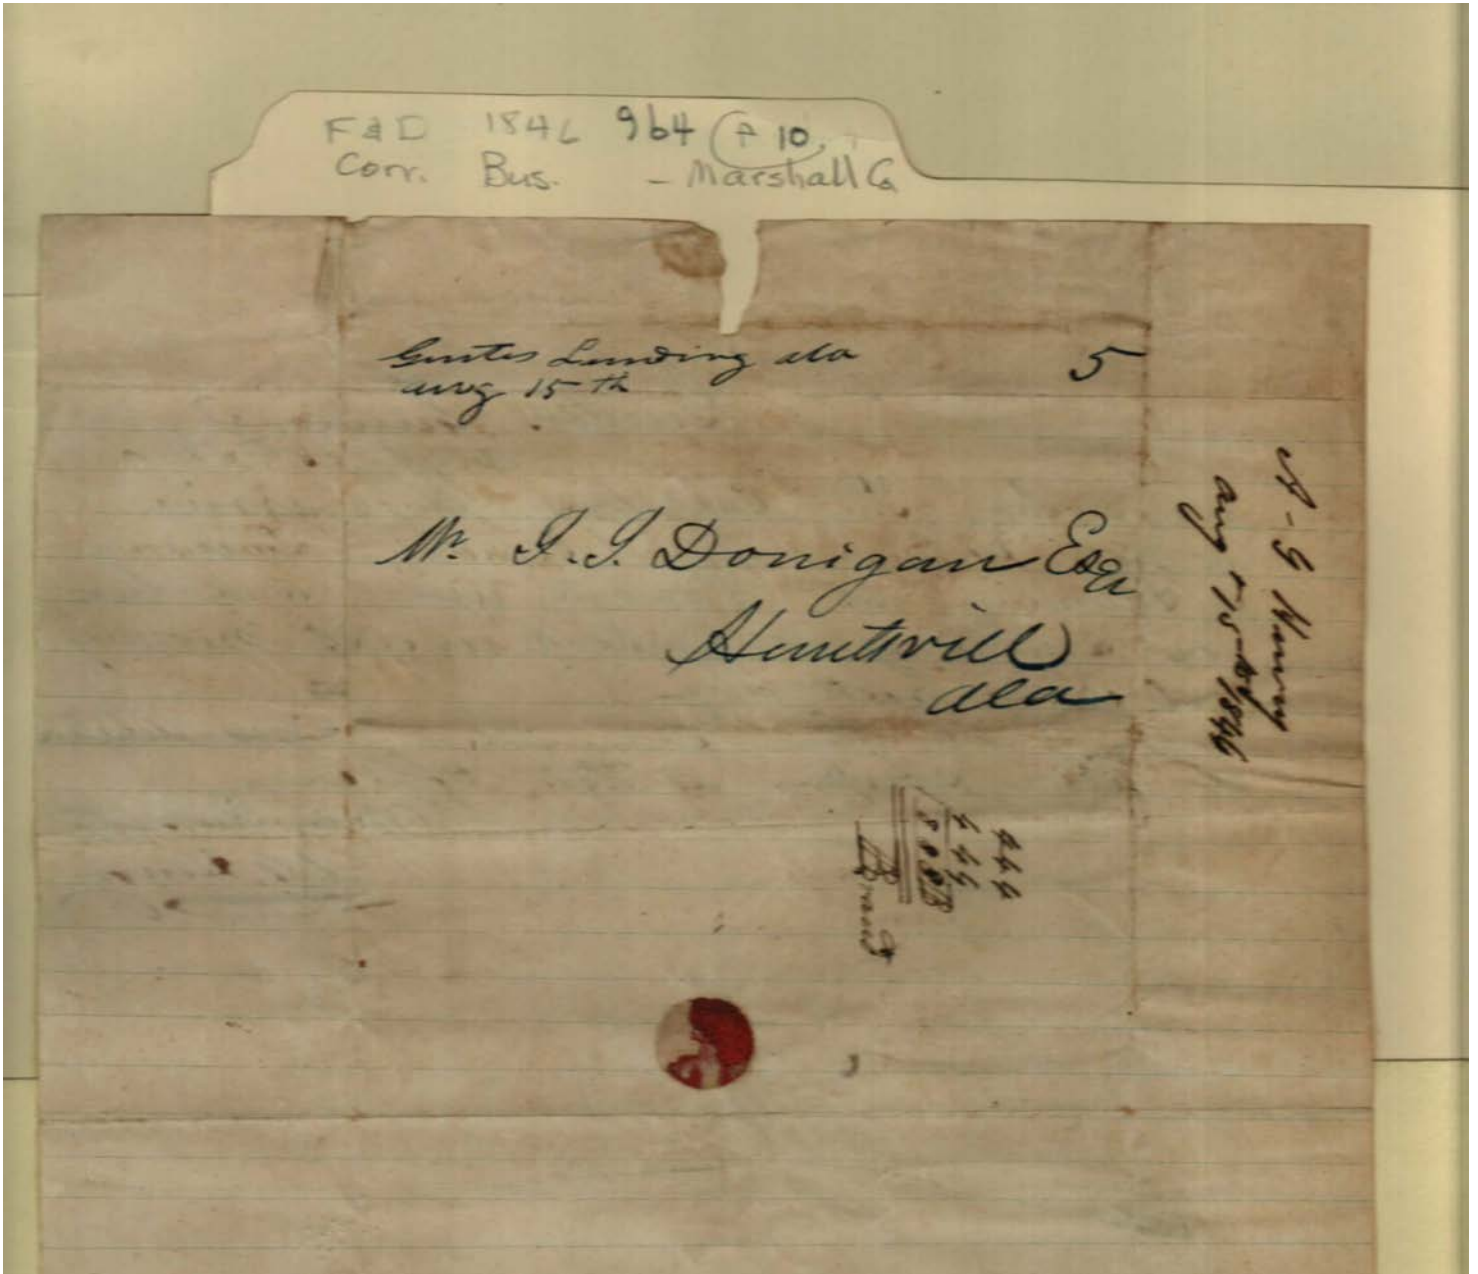 F&D 1846 964 F 10
Corr. Bus. - Marshall Co
Landing ala
aug 15th
5
Mr. J. J. Donigan Esqr
Huntsvill
ala
A-G Henry
aug 15th 1846
444
444
888